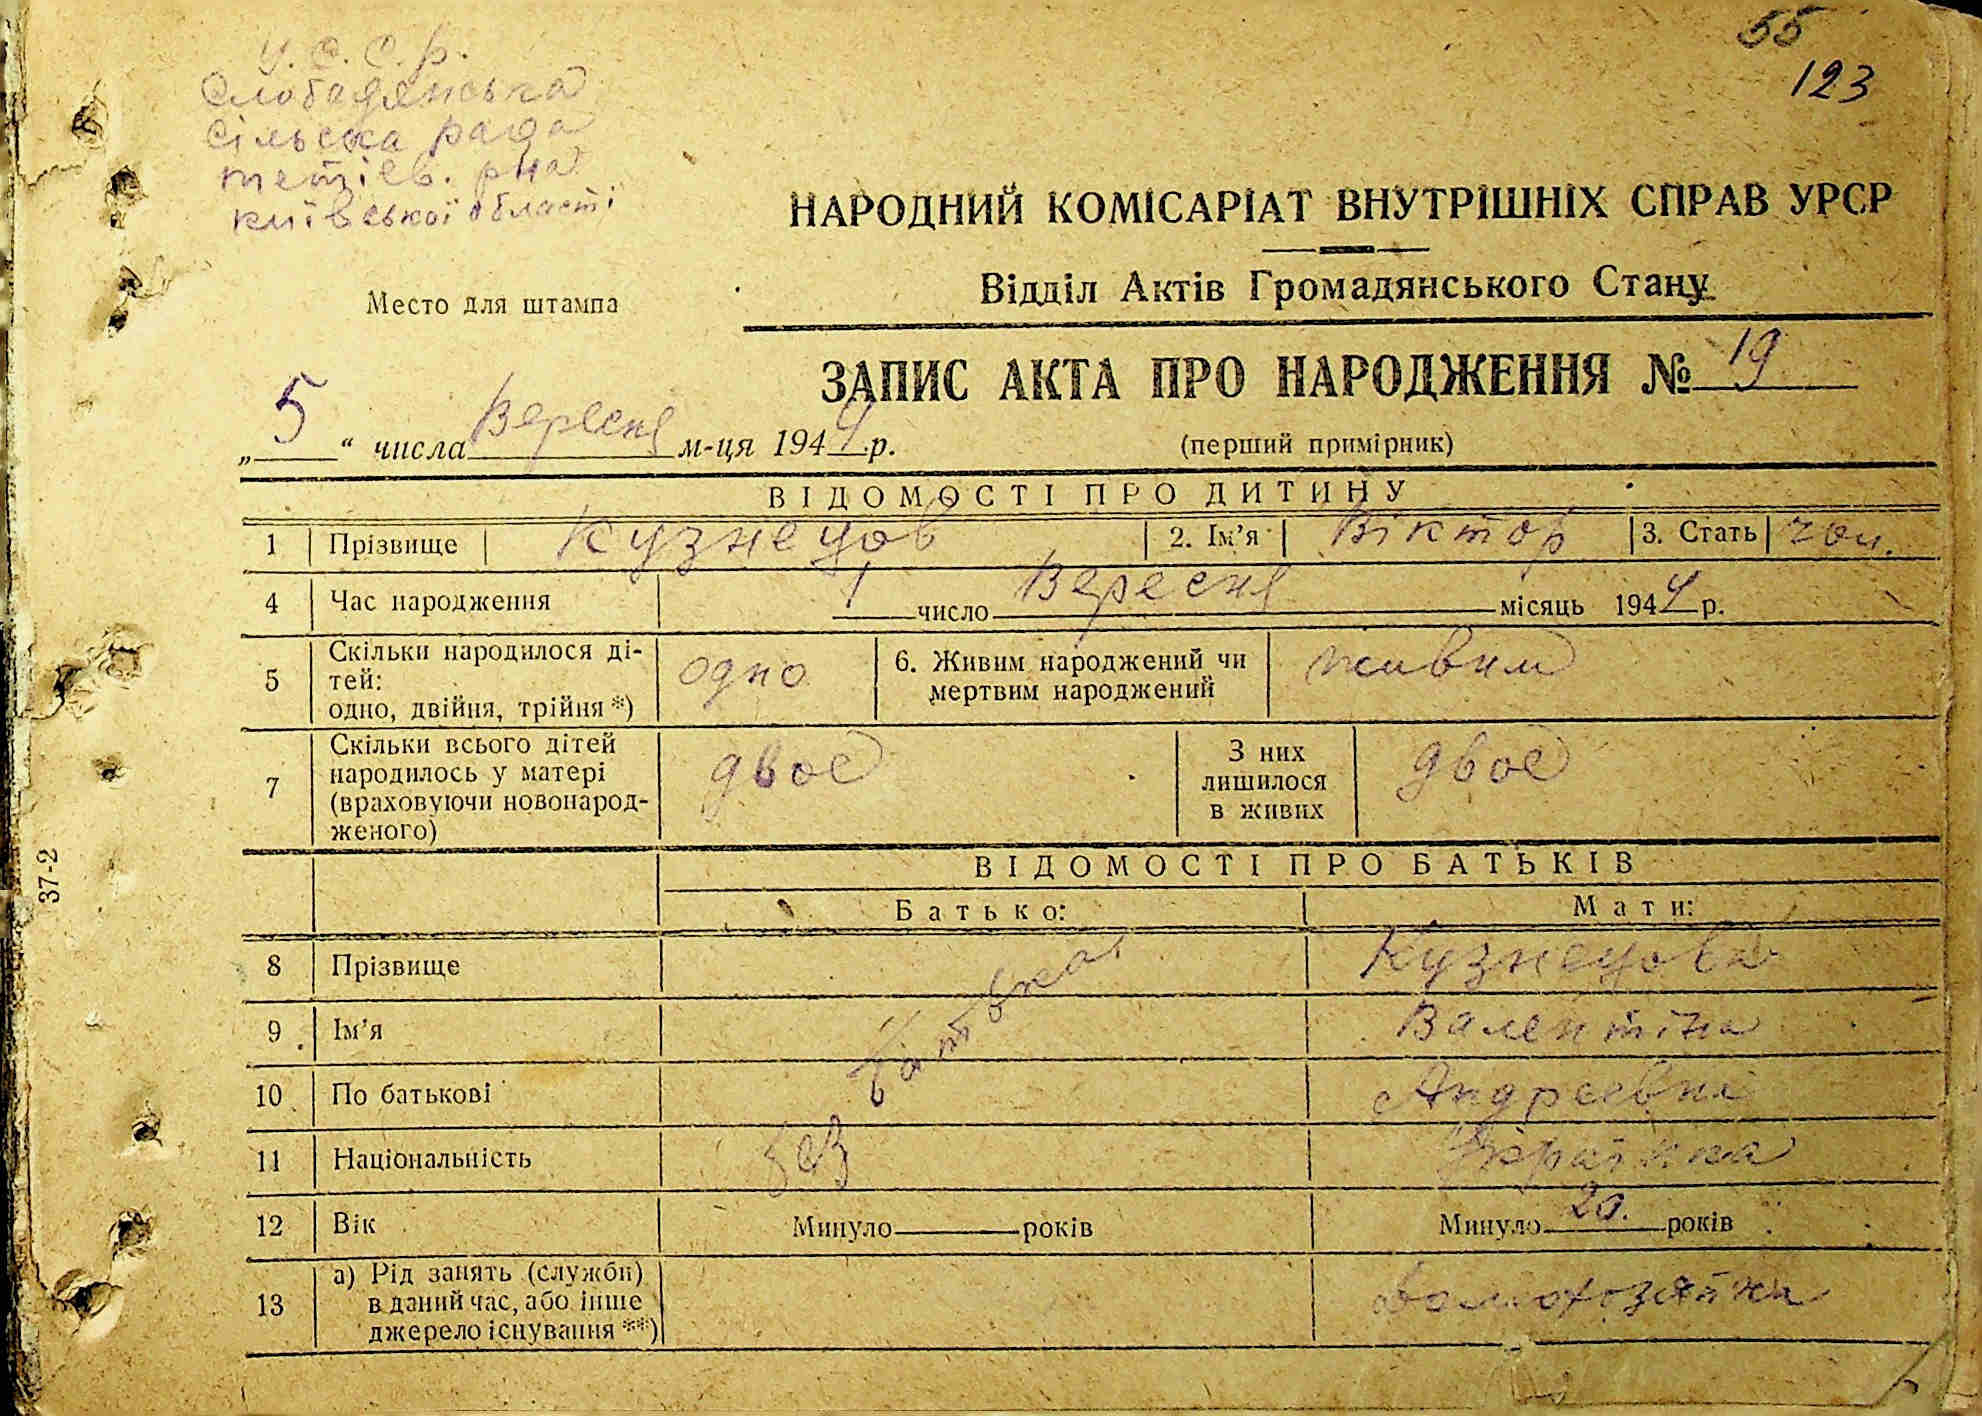 55
123
У. С. С. Р.
Слободянська
сільська рада
тетіев. р-на
київської області
Место для штампа
НАРОДНИЙ КОМІСАРІАТ ВНУТРІШНІХ СПРАВ УРСР
Відділ Актів Громадянського Стану
ЗАПИС АКТА ПРО НАРОДЖЕННЯ № 19
„5“ числа Вересня м-ця 1944 р.
(перший примірник)
ВІДОМОСТІ ПРО ДИТИНУ
1 Прізвище Кузнецов 2. Ім'я Віктор 3. Стать чол.
4 Час народження 1 число Вересня місяць 1944 р.
5 Скільки народилося ді-
тей:
одно, двійня, трійня *)
одно
6. Живим народжений чи
мертвим народжений
живим
7 Скільки всього дітей
народилось у матері
(враховуючи новонарод-
женого)
двоє
З них
лишилося
в живих
двоє
ВІДОМОСТІ ПРО БАТЬКІВ
Батько: Мати:
8 Прізвище Кузнецова
9 Ім'я Валентіна
10 По батькові Андреевна
11 Національність Українка
без батька
12 Вік Минуло років Минуло 20. років
13 а) Рід занять (служби)
в даний час, або інше
джерело існування **)
домохозяйка
37-2